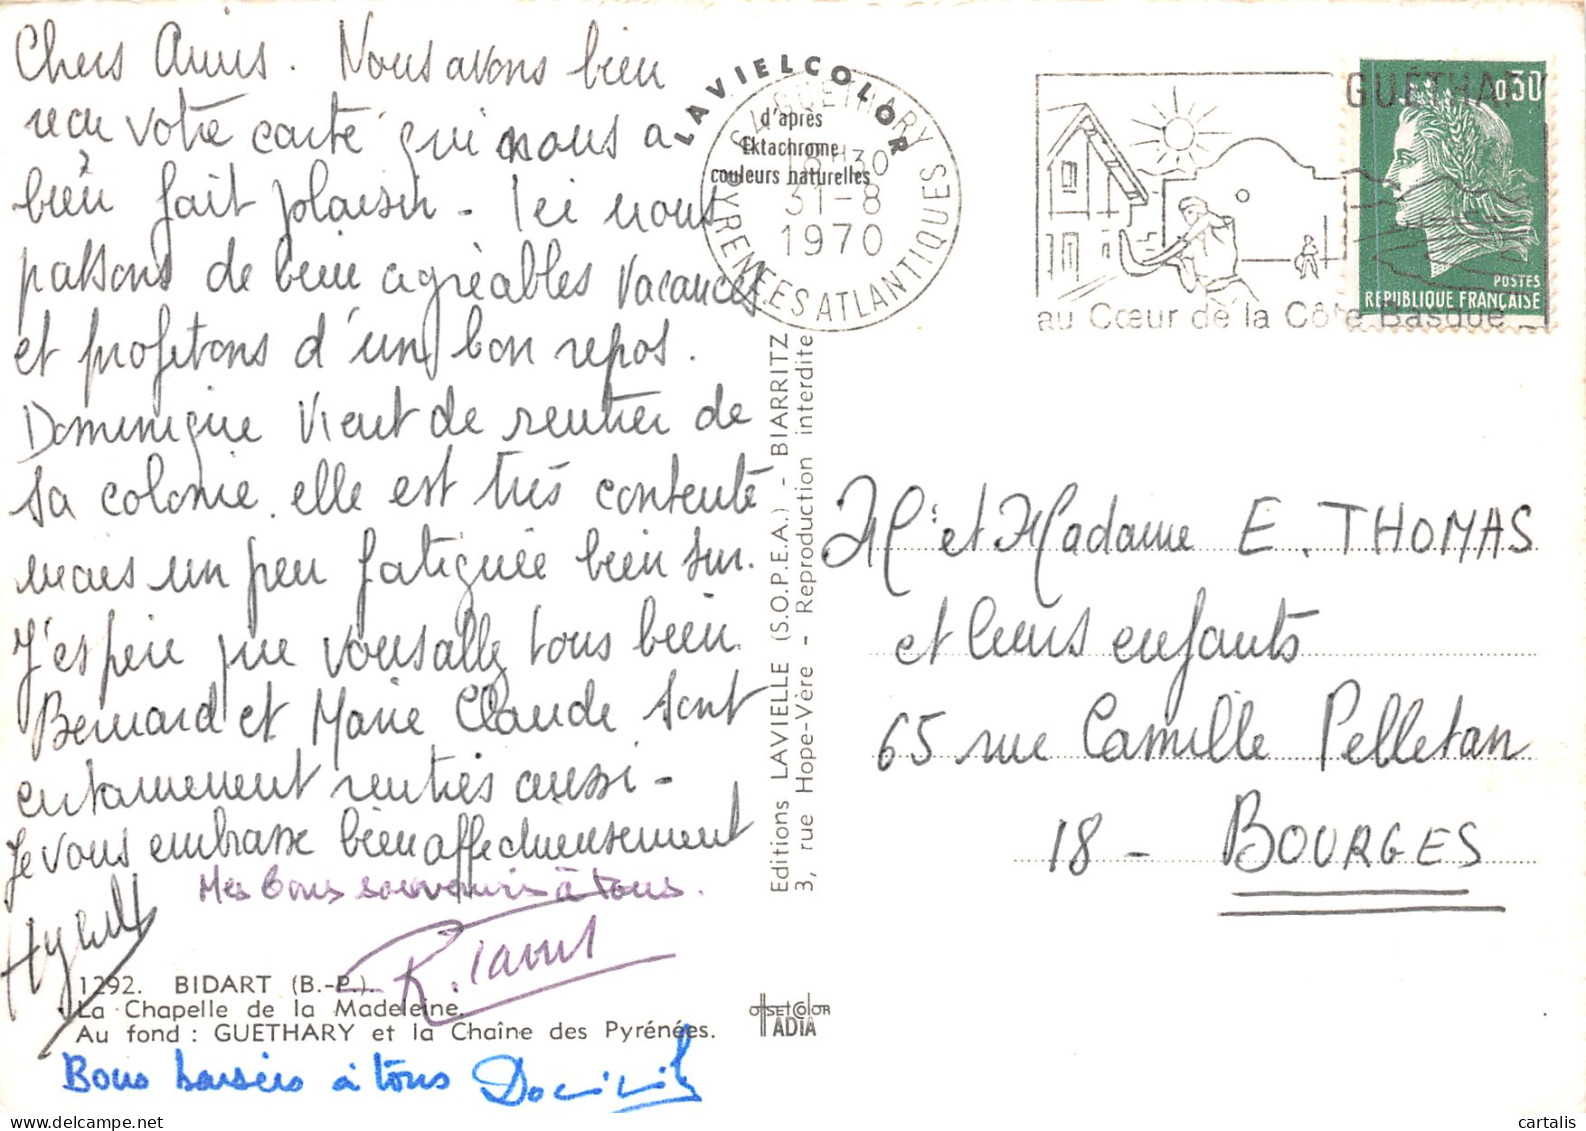 Chers Amis. Nous avons bien
recu votre carte qui nous a
bien fait plaisir - Ici nous
passons de bien agréables vacances
et profitons d'un bon repos.
Dominique vient de rentrer de
sa colonie. elle est très contente
mais un peu fatiguée bien sur.
J'espère que vous allez tous bien
Bernard et Marie Claude sont
certainement rentrés aussi -
Je vous embrasse bien affectueusement
Mes bons souvenirs à tous.
1292. BIDART (B.-P.).
La Chapelle de la Madeleine.
Au fond : GUETHARY et la Chaîne des Pyrénées.
Bons baisers à tous
OFFSET COLOR
ADIA
Editions LAVIELLE (S.O.P.E.A.) - BIARRITZ
3, rue Hope-Vère - Reproduction interdite
LAVIELCOLOR
d'après
Ektachrome
couleurs naturelles
GUETHARY
18H30
31-8
1970
PYRENEES ATLANTIQUES
GUÉTHARY
au Cœur de la Côte Basque
0,30
POSTES
REPUBLIQUE FRANÇAISE
Mr et Madame E. THOMAS
et leurs enfants
65 rue Camille Pelletan
18 - BOURGES
cartalis
delcampe.net